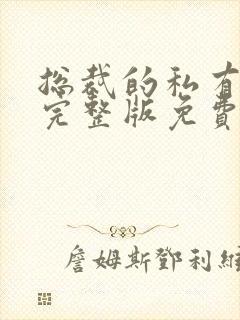 总裁的私有
完整版免費
詹姆斯鄧利維